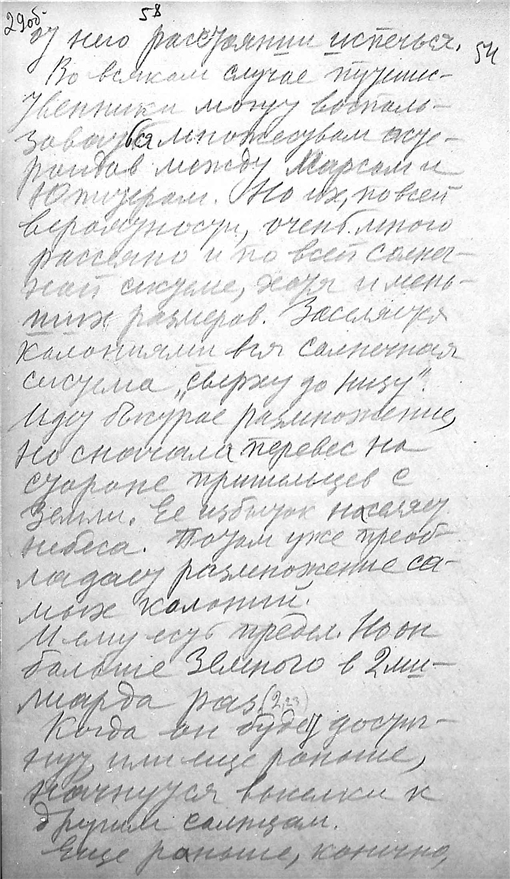 29об. 58
от него расстоянии испечься. 54
Во всяком случае путеше-
ственники могут восполь-
зоваться множеством асте-
роидов между Марсом и
Юпитером. Но их, по всей
вероятности, очень много
рассеяно и по всей солнеч-
ной системе, хотя и мень-
ших размеров. Заселяется
колониями вся солнечная
система „сверху до низу".
Идет быстрое размножение,
но сначала перевес на
стороне пришельцев с
Земли. Ее избыток населяет
небеса. Потом уже преоб-
ладает размножение са-
мых колоний.
И ему есть предел. Но он
больше Земного в 2 ми-
лиарда раз
Когда он будет достиг-
нут, или еще раньше,
начнутся вылазки к
другим солнцам.
Еще раньше, конечно,